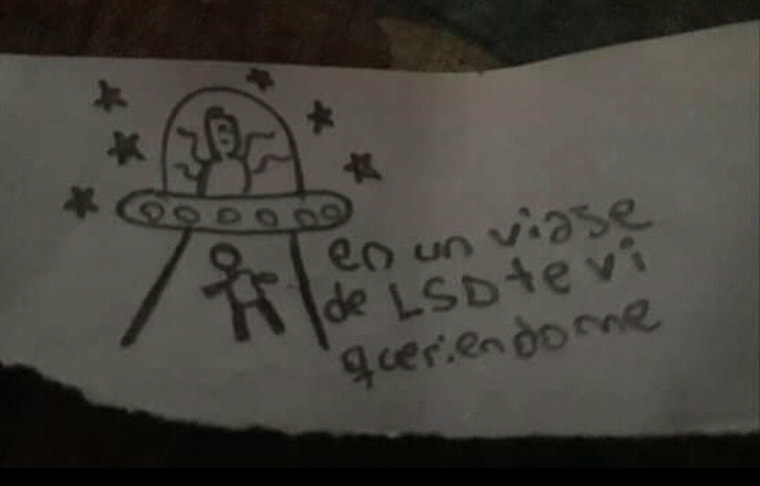 en un viase
de LSD te vi
queriendome